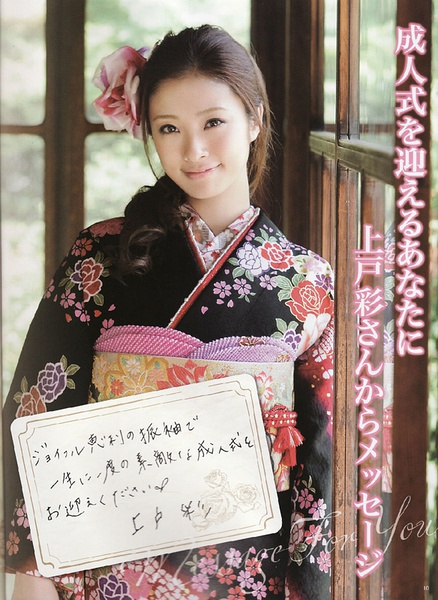 成人式を迎えるあなたに
上戸彩さんからメッセージ
ジョイフル恵利の振袖で
一生に一度の素敵な成人式を
お迎えください♡
上戸 彩
Message For You
10